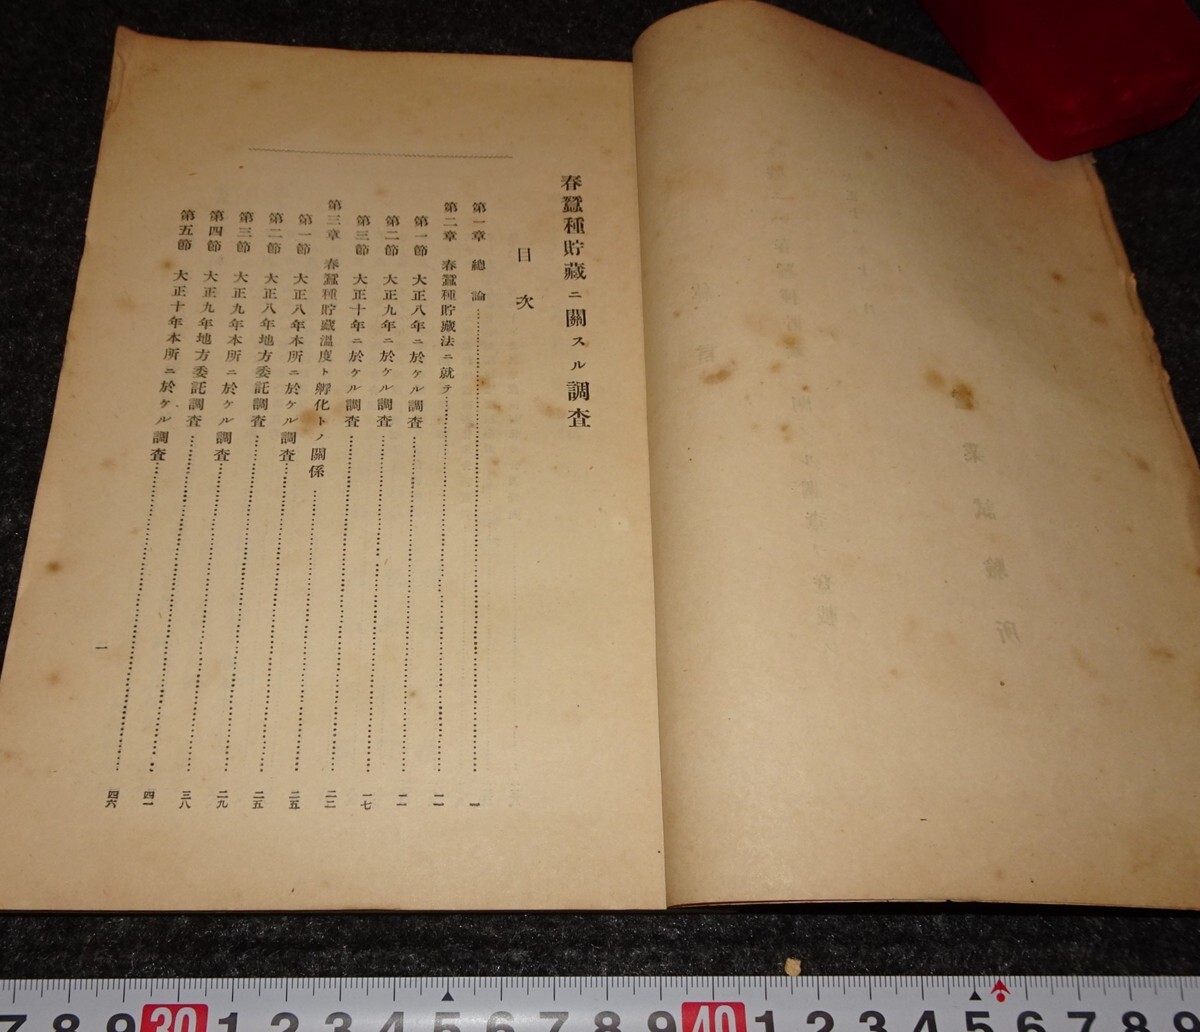 春蠶種貯藏ニ關スル調査
目次
第一章 總論
第二章 春蠶種貯藏法ニ就テ
第一節 大正八年ニ於ケル調査
第二節 大正九年ニ於ケル調査
第三節 大正十年ニ於ケル調査 一七
第三章 春蠶種貯藏溫度ト孵化トノ關係 二二
第一節 大正八年本所ニ於ケル調査 二五
第二節 大正八年地方委託調査 二五
第三節 大正九年本所ニ於ケル調査 二九
第四節 大正九年地方委託調査 三八
第五節 大正十年本所ニ於ケル調査 四一
四六
一
7 8 9 30 1 2 3 4 5 6 7 8 9 40 1 2 3 4 5 6 7 8 9